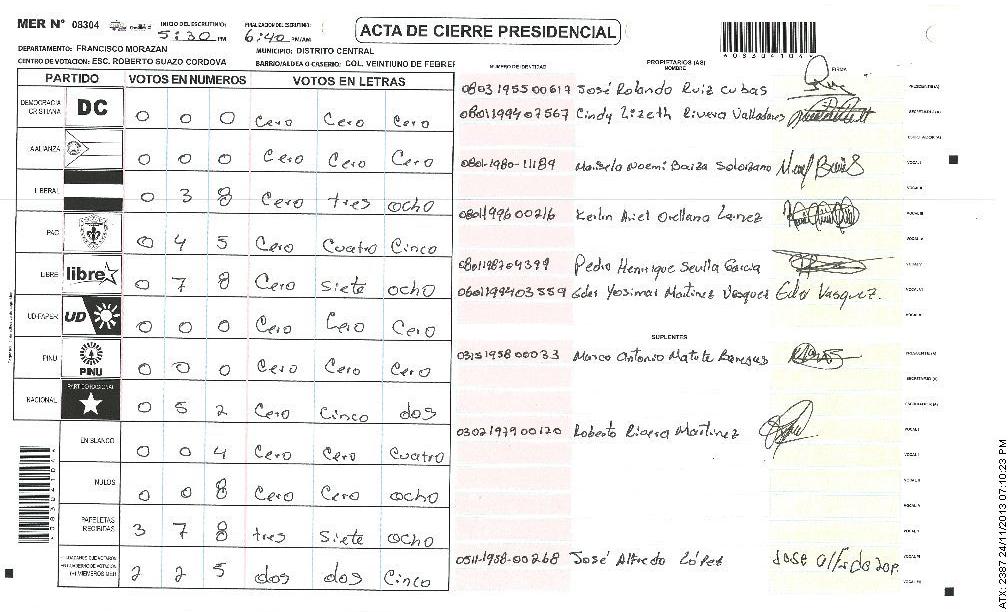 MER N° 08304 INICIO DEL ESCRUTINIO: 5:30 PM FINALIZACION DEL ESCRUTINIO: 6:40 PM/AM ACTA DE CIERRE PRESIDENCIAL
DEPARTAMENTO: FRANCISCO MORAZAN MUNICIPIO: DISTRITO CENTRAL
CENTRO DE VOTACION: ESC. ROBERTO SUAZO CORDOVA BARRIO/ALDEA O CASERIO: COL. VEINTIUNO DE FEBRER
PARTIDO VOTOS EN NUMEROS VOTOS EN LETRAS
DEMOCRACIA CRISTIANA DC 0 0 0 Cero Cero Cero
ALIANZA 0 0 0 Cero Cero Cero
LIBERAL 0 3 8 Cero tres ocho
PAC 0 4 5 Cero Cuatro Cinco
LIBRE libre 0 7 8 Cero siete ocho
UD FAPER UD 0 0 0 Cero Cero Cero
PINU PINU 0 0 0 Cero Cero Cero
NACIONAL PARTIDO NACIONAL 0 5 2 Cero Cinco dos
EN BLANCO 0 0 4 Cero Cero Cuatro
NULOS 0 0 8 Cero Cero ocho
PAPELETAS RECIBIDAS 3 7 8 tres siete ocho
2 2 5 dos dos Cinco
NUMERO DE IDENTIDAD PROPIETARIOS (AS) NOMBRE FIRMA
0803195500617 José Rolando Ruiz Cubas
0801199407567 Cindy Lizeth Rivera Valladares
0801-1980-11189 Noemi Baiza Solorzano
0801199600216 Keilin Ariel Orellana Lainez
Pedro Henrique Sevilla Garcia
0601199403559 Eder Yosimar Martinez Vasquez Eder Vasquez.
SUPLENTES
0315195800033 Marco Antonio Matute
0302197900120 Roberto Rivera Martinez
0511-1958-00268 José Alfredo López
ATX: 2387 24/11/2013 07:10:23 PM